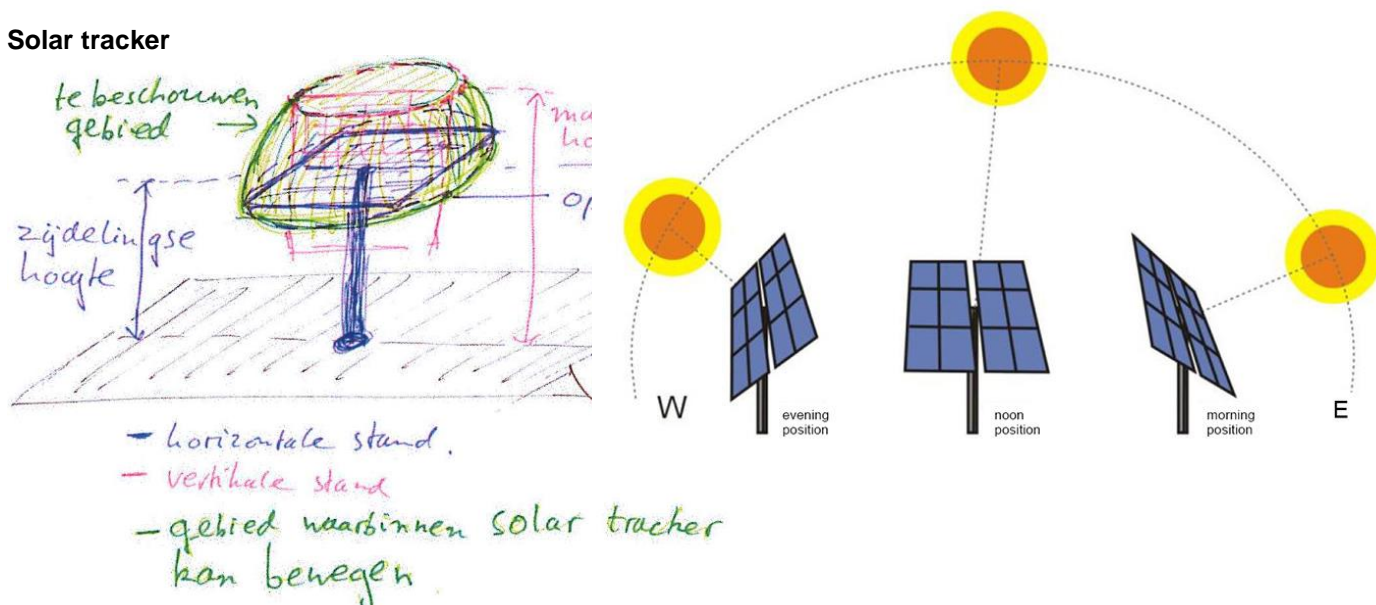 Solar tracker
te beschouwen
gebied
zijdelingse
hoogte
- horizontale stand.
- vertikale stand
- gebied waarbinnen solar tracher
kan bewegen
W
evening
position
noon
position
morning
position
E